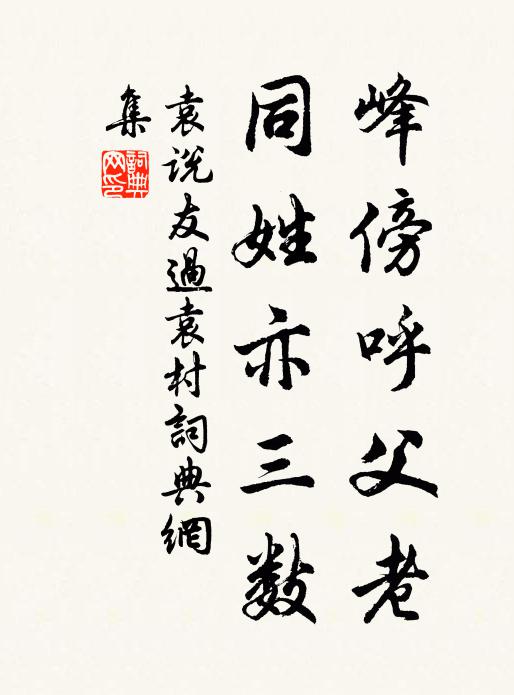 峰傍呼父老
同姓亦三数
袁说友過袁村詞典網
集
詞典网印